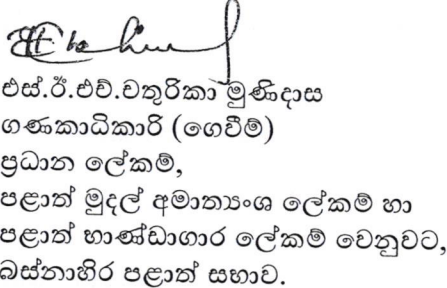 එස්.ඊ.එච්.චතුරිකා මුණිදාස
ගණකාධිකාරි (ගෙවීම්)
ප්‍රධාන ලේකම්,
පළාත් මුදල් අමාත්‍යංශ ලේකම් හා
පළාත් භාණ්ඩාගාර ලේකම් වෙනුවට,
බස්නාහිර පළාත් සභාව.